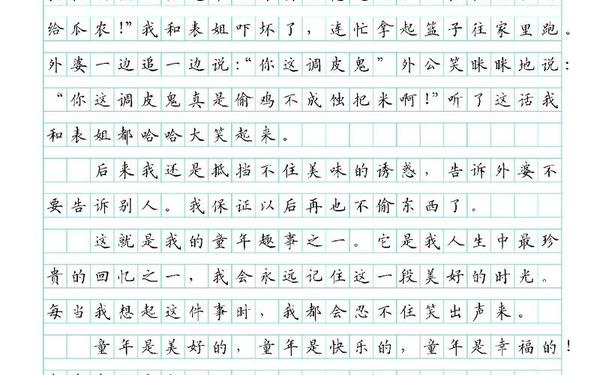 给瓜农!”我和表姐吓坏了，连忙拿起篮子往家里跑。
外婆一边追一边说:“你这调皮鬼”外公笑眯眯地说:
“你这调皮鬼真是偷鸡不成蚀把米啊!”听了这话我
和表姐都哈哈大笑起来。
后来我还是抵挡不住美味的诱惑，告诉外婆不
要告诉别人。我保证以后再也不偷东西了。
这就是我的童年趣事之一。它是我人生中最珍
贵的回忆之一，我会永远记住这一段美好的时光。
每当我想起这件事时，我都会忍不住笑出声来。
童年是美好的，童年是快乐的，童年是幸福的!